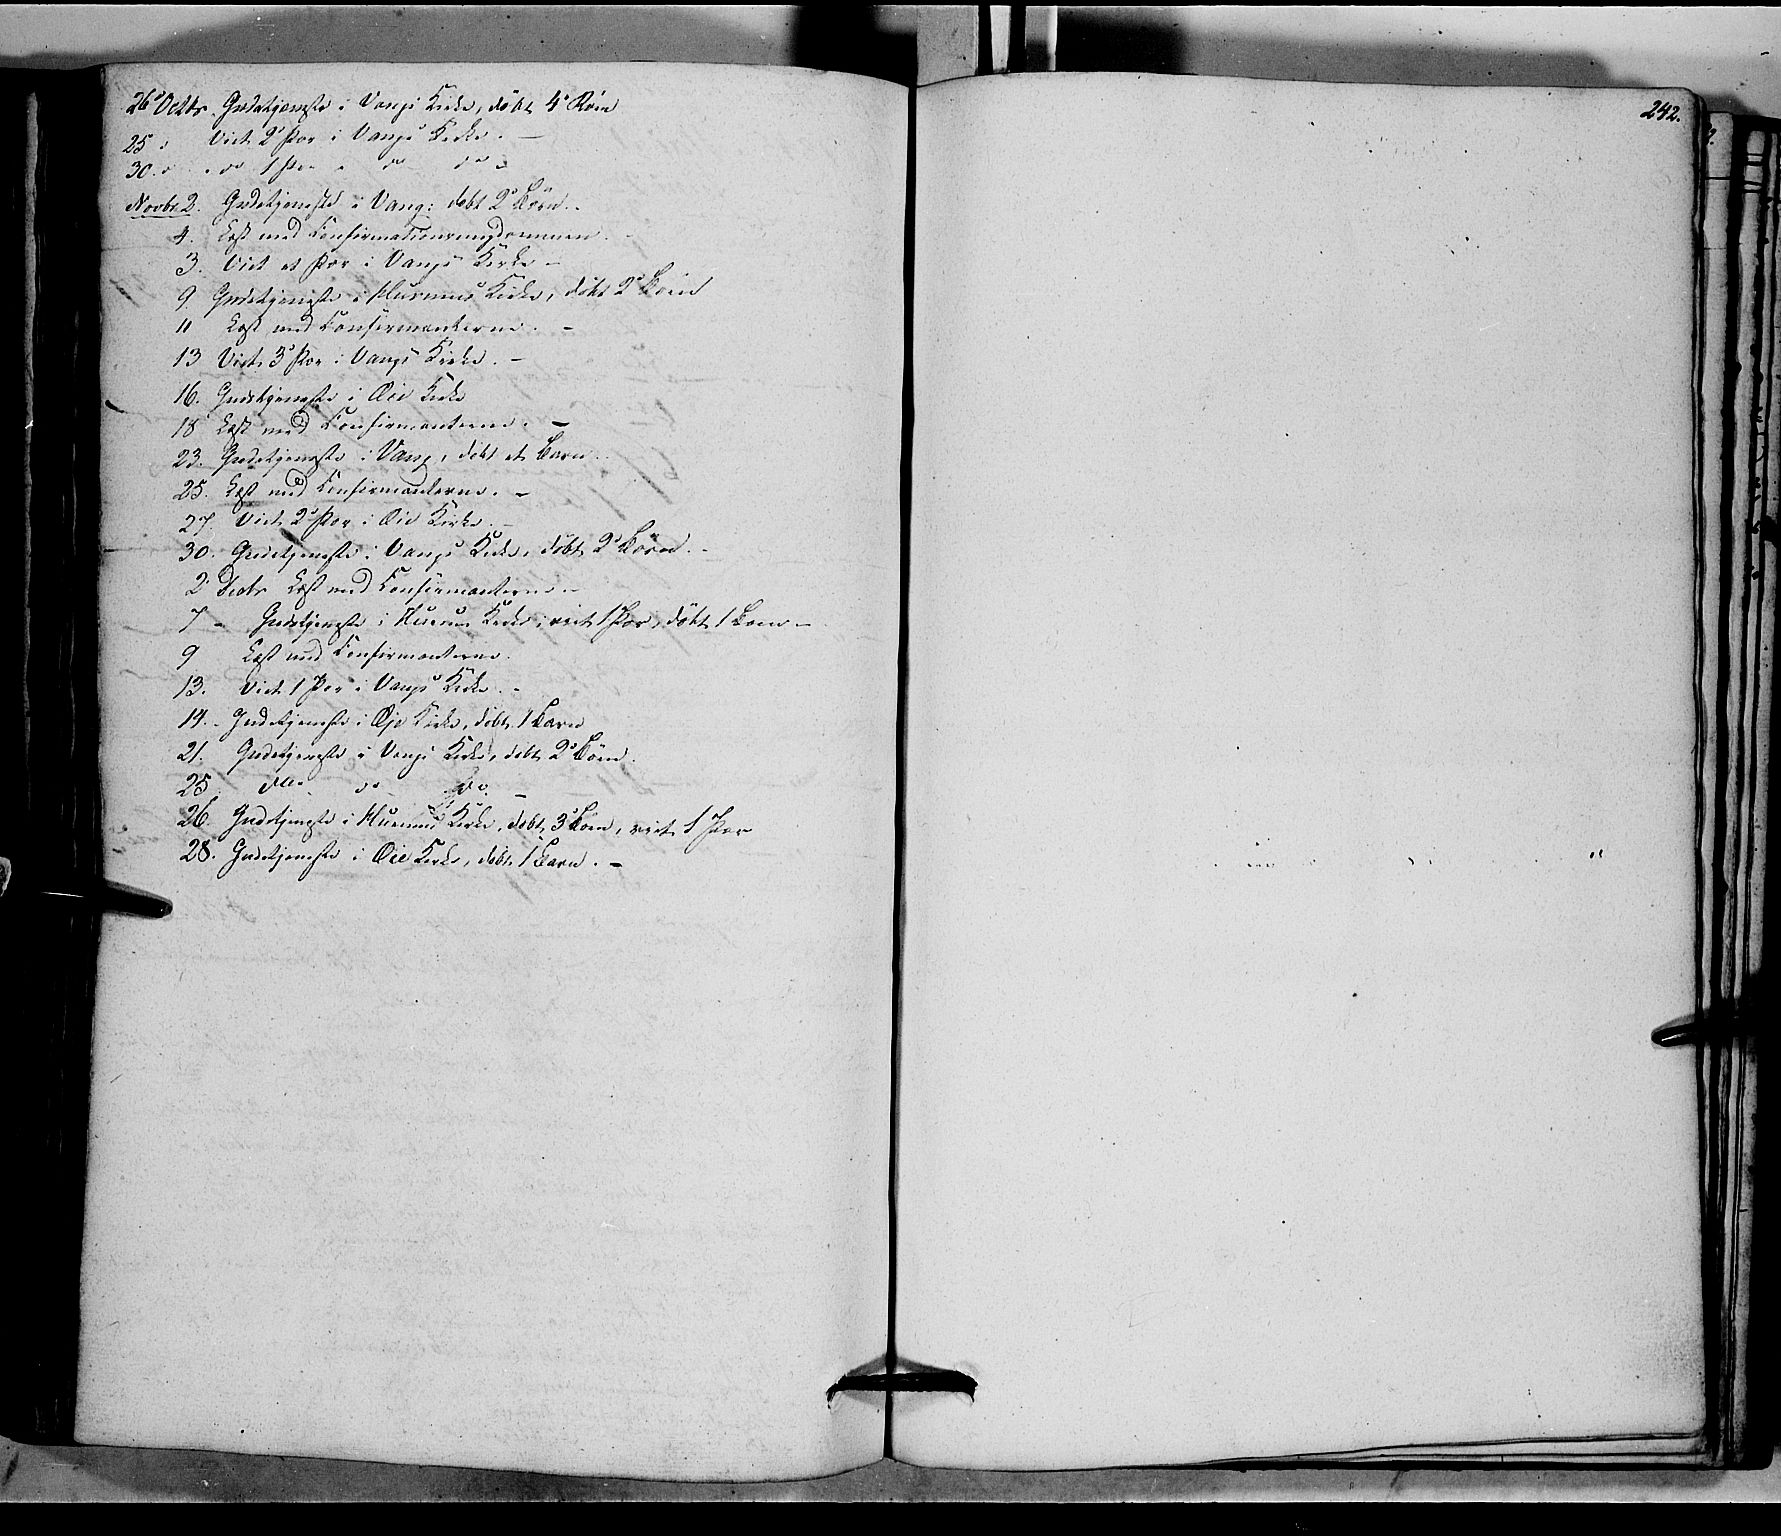 26 Octbr. Gudstjeneste i Vangs Kirke, döbt 4 Börn
25 " Viet 2 Par i Vangs Kirke. —
30. " " do 1 Par " do do
Novbr. 2. Gudstjeneste i Vang: döbt 2 Börn. -
4. Læst med Confirmationsungdommen. -
3. Viet et Par i Vangs Kirke -
9 Gudstjeneste i Hurums Kirke, döbt 2 Börn
11 Læst med Confirmanterne. -
13 Viet 3 Par i Vangs Kirke. -
16. Gudstjeneste i Öie Kirke
18 Læst med Confirmanterne. -
23. Gudstjeneste i Vang, döbt et Barn.
25. Læst med Confirmanterne. -
27. Viet 2 Par i Öie Kirke. -
30. Gudstjeneste i Vangs Kirke, döbt 2 Börn. -
2 Decbr Læst med Confirmanterne -
7 - Gudstjeneste i Hurum Kirke, viet 1 Par, döbt 1 Barn -
9 Læst med Confirmanterne.
13. Viet 1 Par i Vangs Kirke. -
14. - Gudstjeneste i Öje Kirke, döbt 1 Barn
21. Gudstjeneste i Vangs Kirke, döbt 2 Börn.
25. do do. -
26. Gudstjeneste i Hurums Kirke, döbt 3 Börn, viet 1 Par
28. Gudstjeneste i Öie Kirke, döbt 1 Barn. -
242.